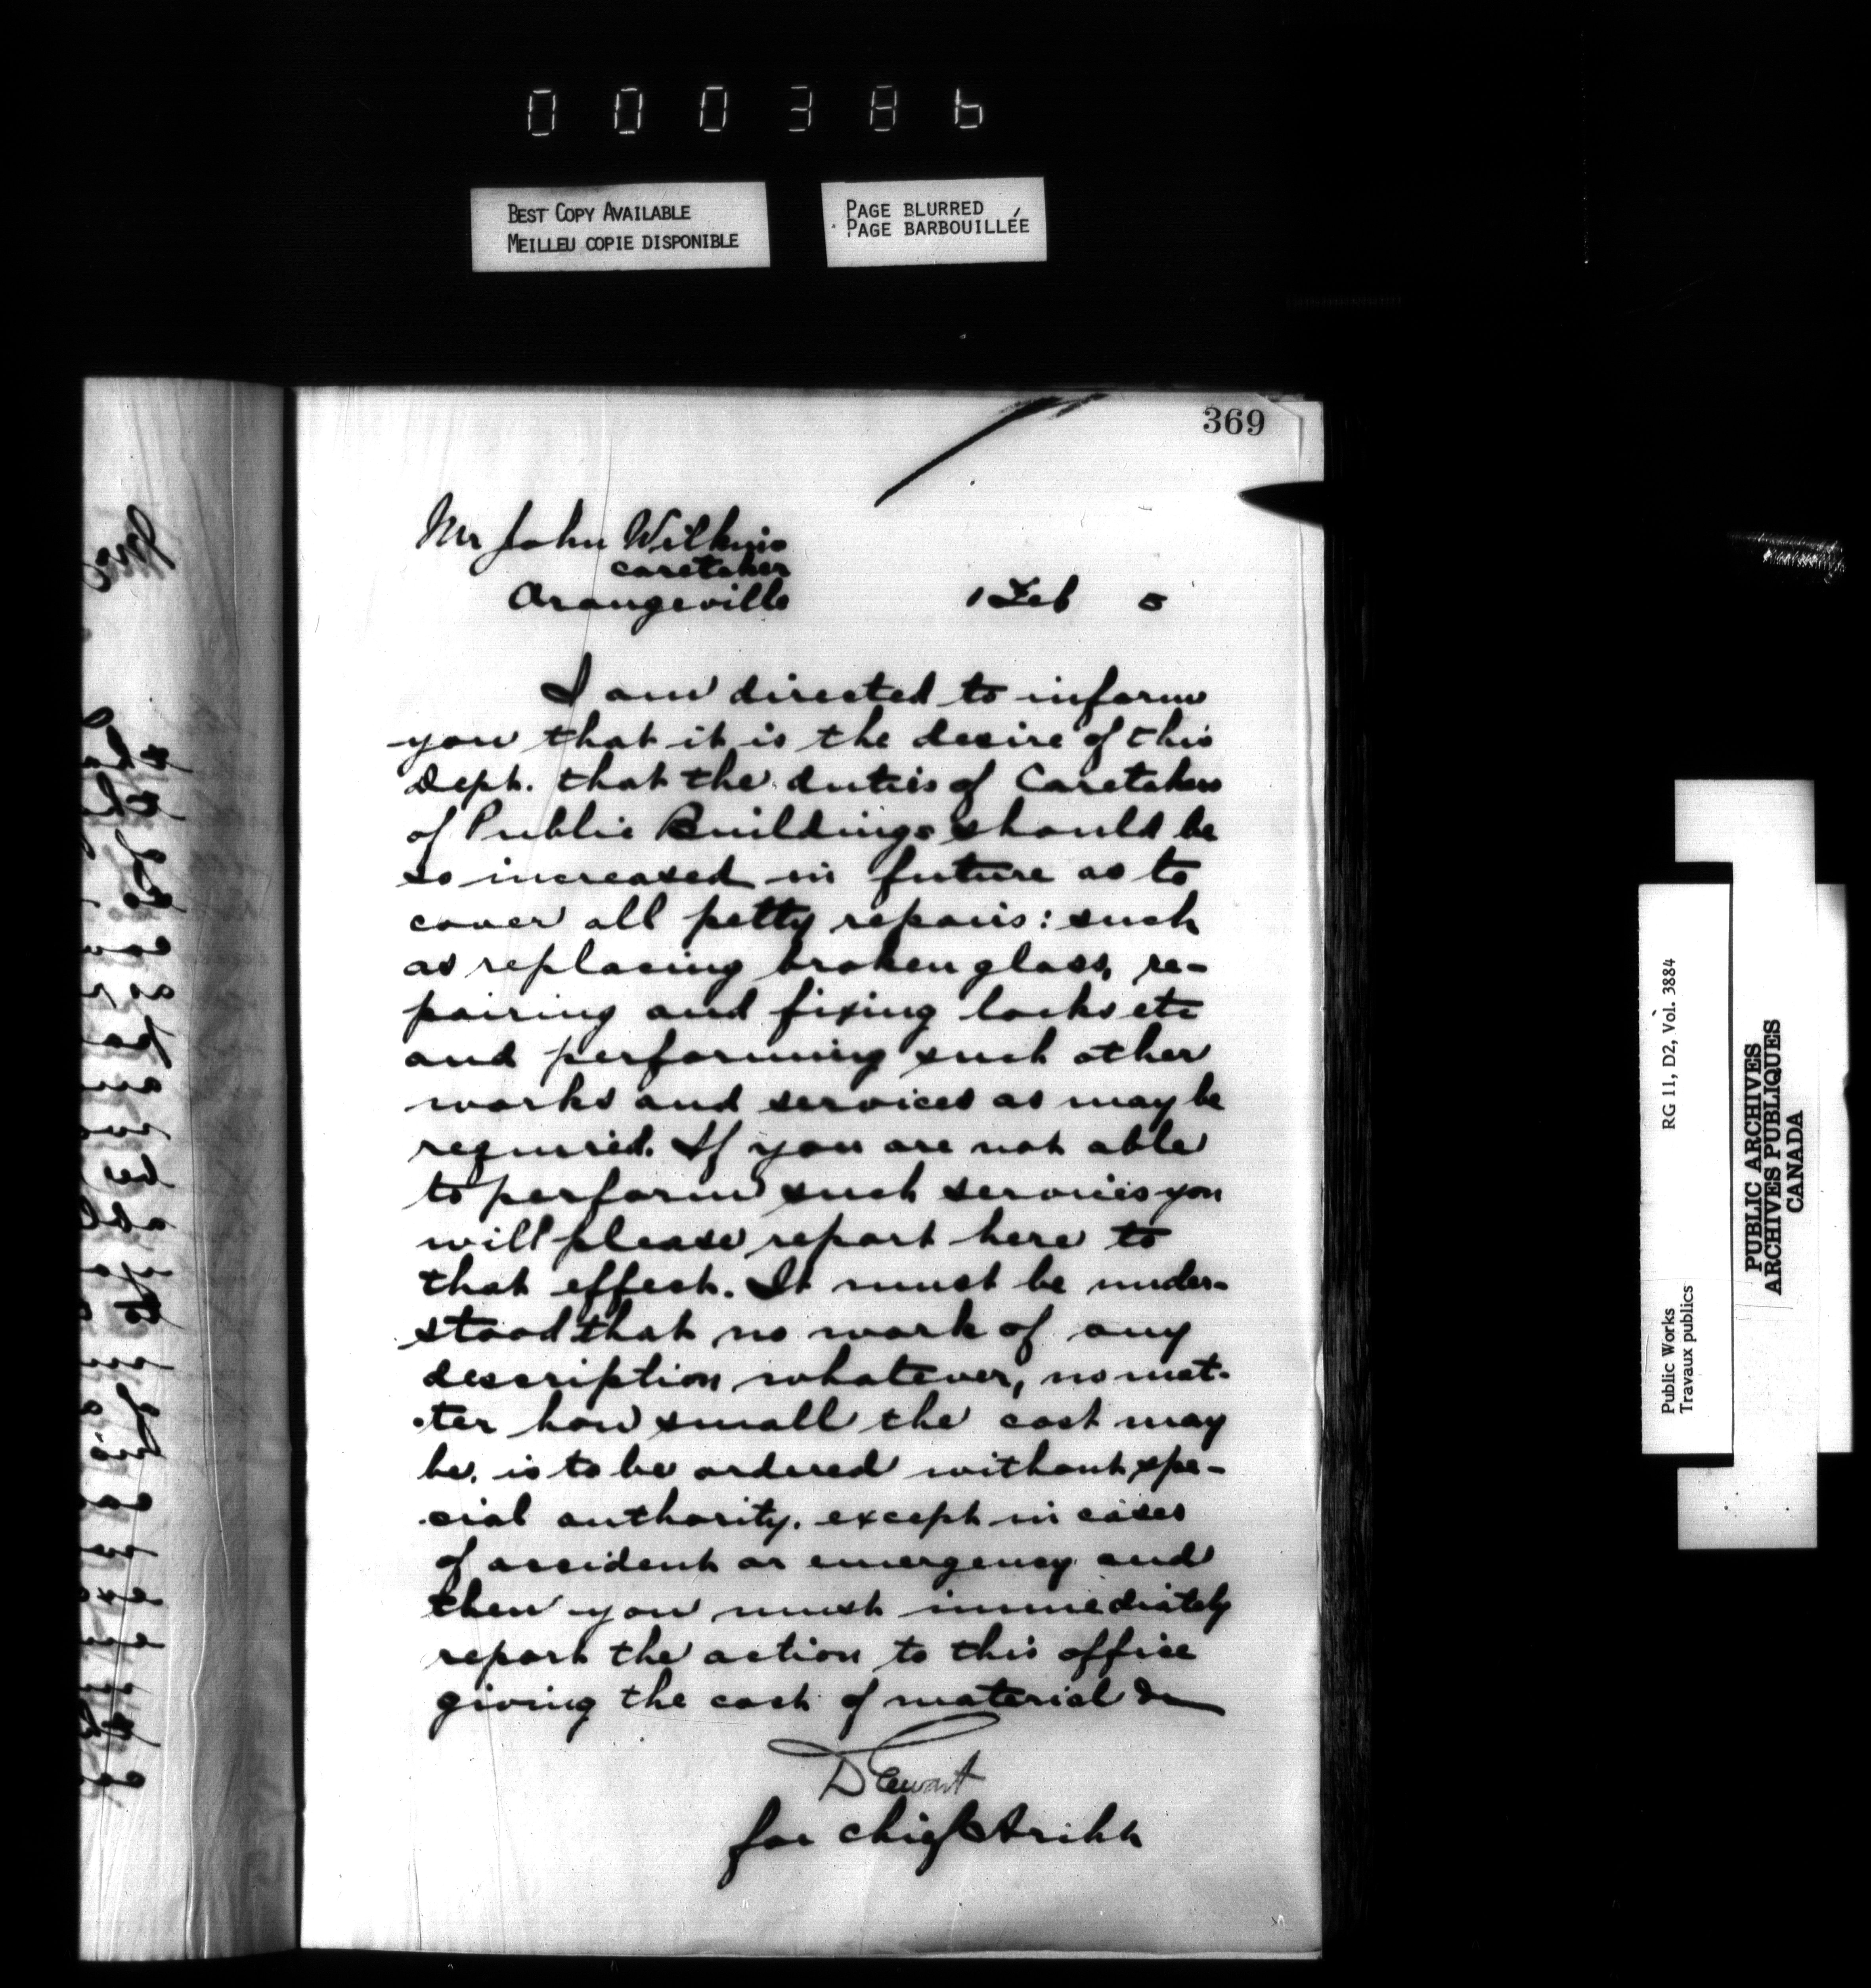 000386
BEST COPY AVAILABLE
MEILLEU COPIE DISPONIBLE
PAGE BLURRED
PAGE BARBOUILLÉE
369
Mr John Wilkins
caretaker
Orangeville
1 Feb 5
I am directed to inform
you that it is the desire of this
Dept. that the duties of Caretakers
of Public Buildings should be
so increased in future as to
cover all petty repairs: such
as replacing broken glass, re-
pairing and fixing locks etc
and performing such other
works and services as may be
required. If you are not able
to perform such services you
will please report here to
that effect. It must be under-
stood that no work of any
description whatever, no mat-
ter how small the cost may
be, is to be ordered without spe-
cial authority, except in cases
of accident or emergency and
then you must immediately
report the action to this office
giving the cost of material &c
D Ewart
for chief Archt
RG 11, D2, Vol. 3884
Public Works
Travaux publics
PUBLIC ARCHIVES
ARCHIVES PUBLIQUES
CANADA